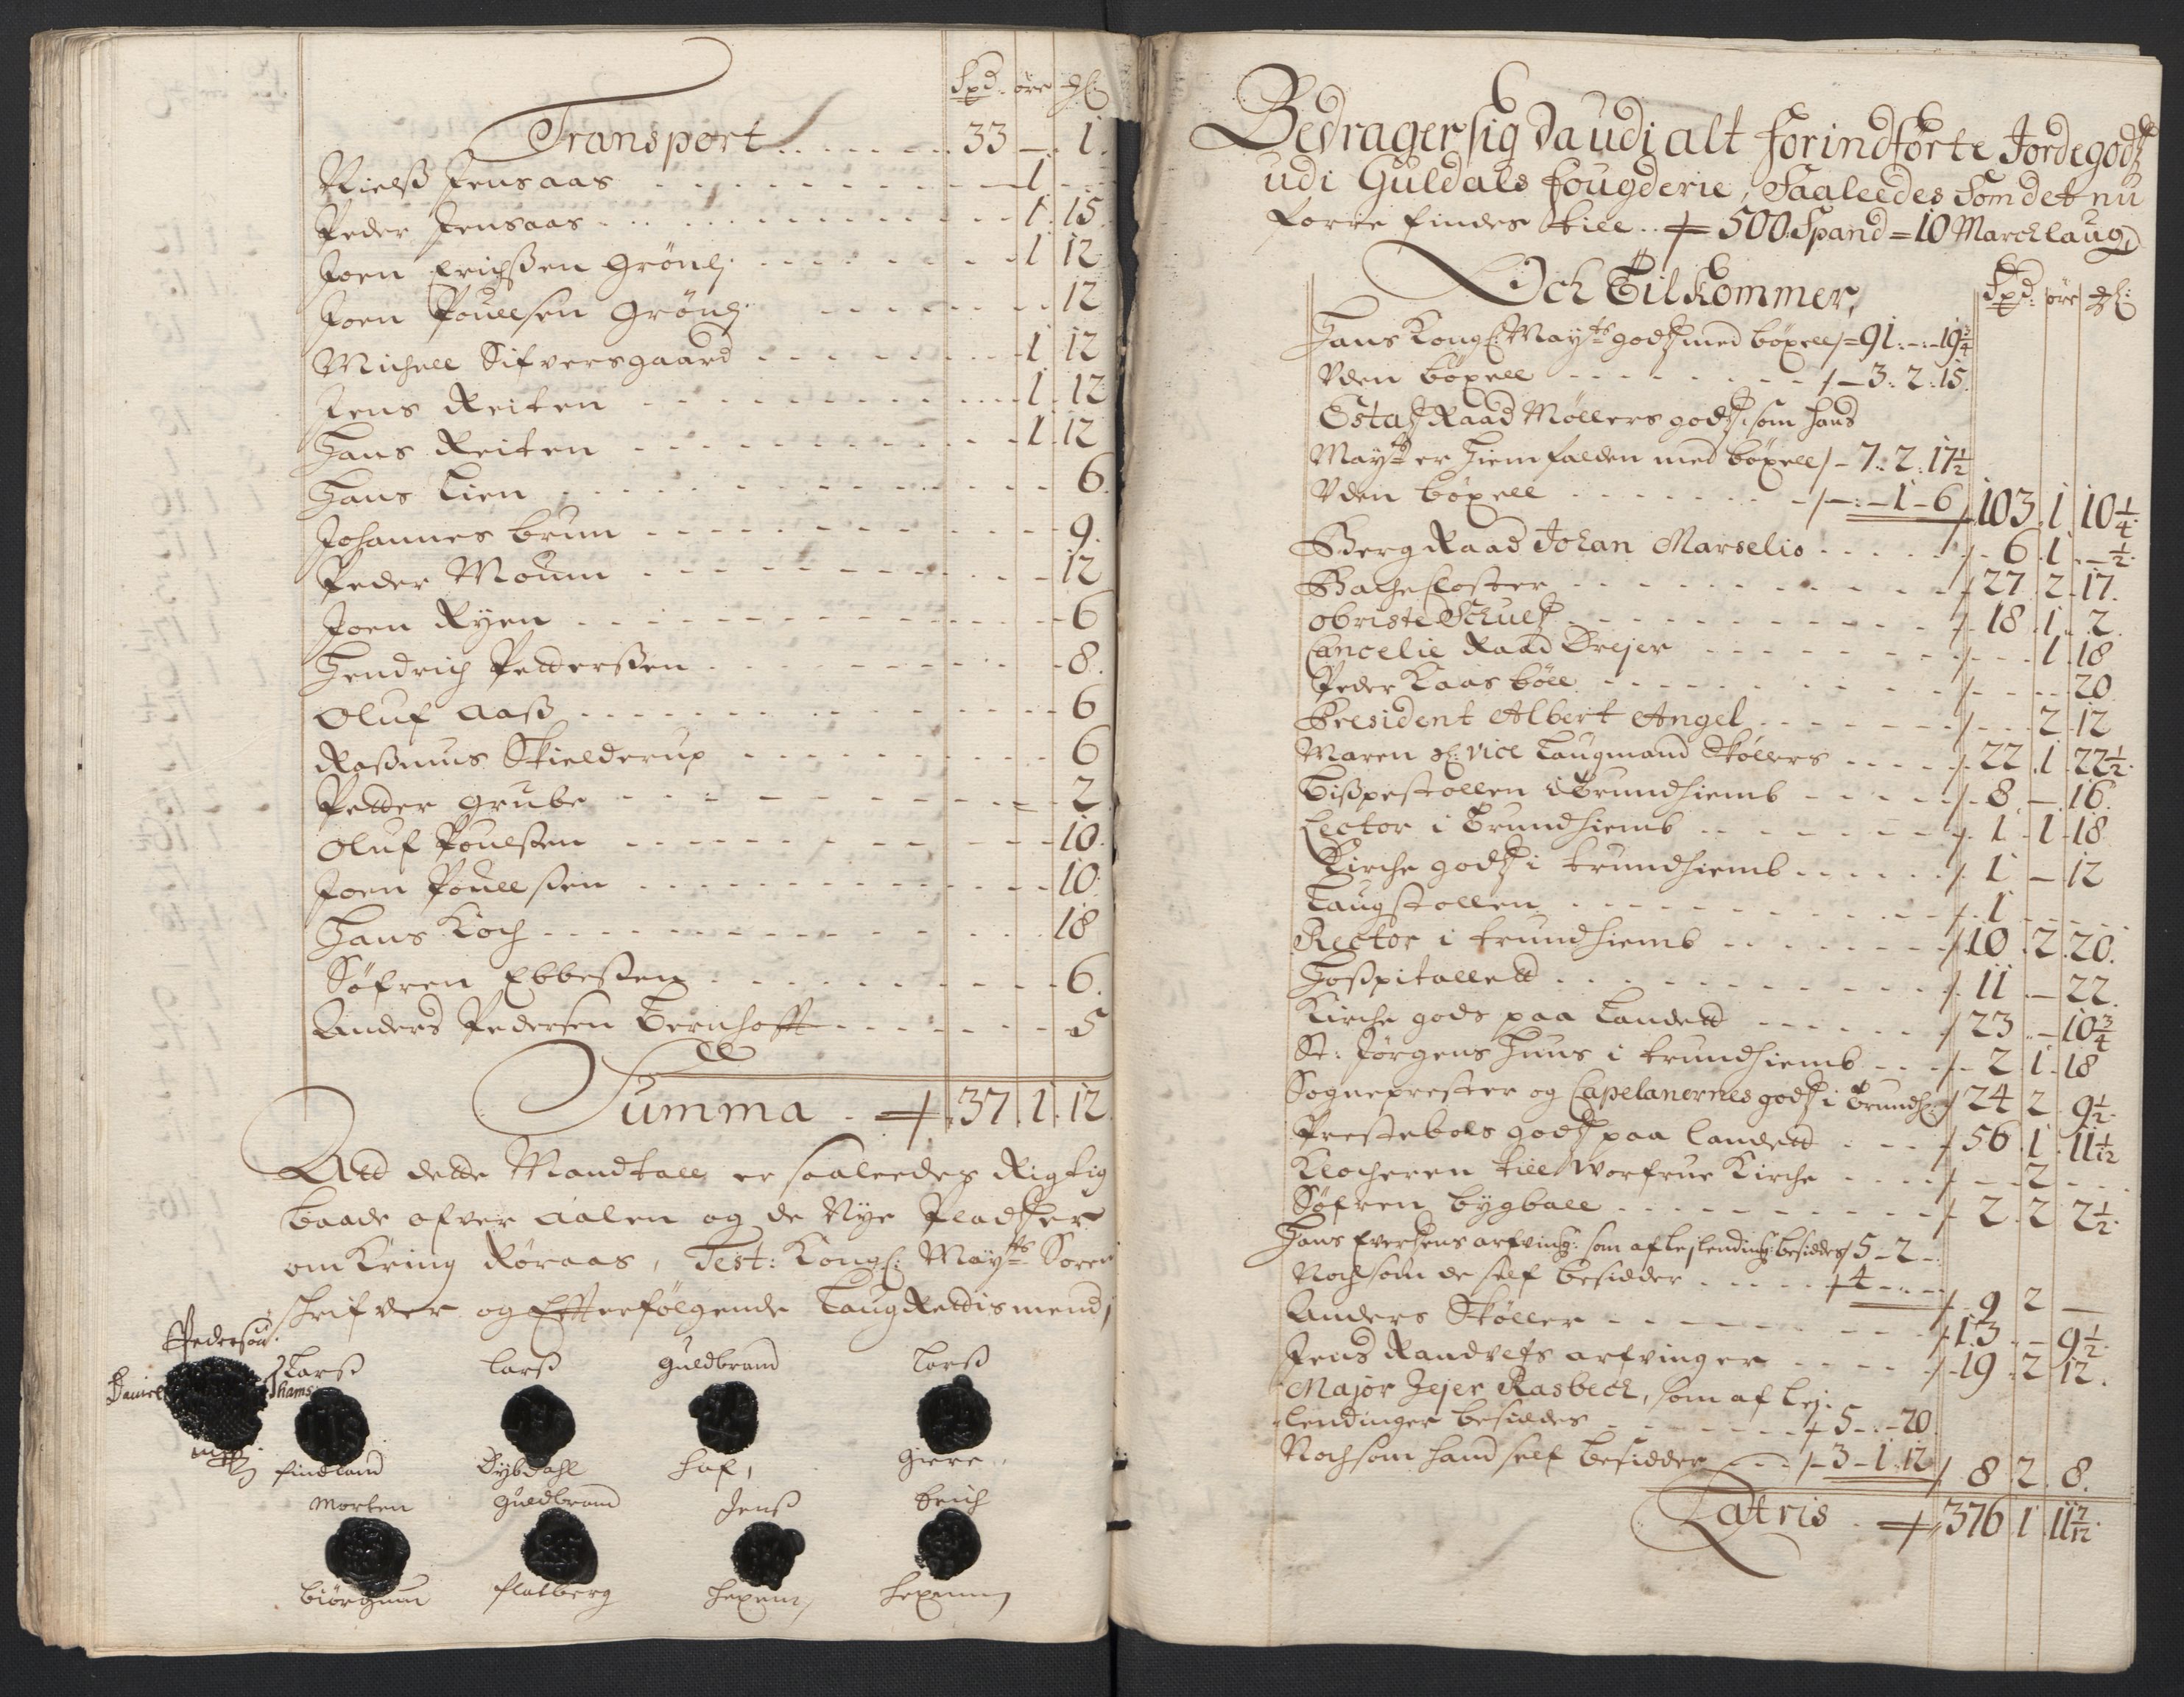 Spd: øre ₰:
Transport . . . . . . 33 — 1.
Nielß Jensaas . . . . 1 . . .
Peder Jensaas . . . . 1. 15.
Joen Erichßen Grönli . . . . 1 12
Joen Pouelsen Grönli . . . . 12
Michell Sifversgaard . . . . 1 12
Jens Reiten . . . . 1. 12
Hans Reiten . . . . 1. 12
Hans Lien . . . . 6.
Johannes Brun . . . . 9.
Peder Moum . . . . 12
Joen Ryen . . . . 6
Hendrich Pedderßen . . . . 8.
Oluf Aaß . . . . 6
Raßmus Skielderup . . . . 6
Petter Grube . . . . 2
Oluf Poulßen . . . . 10.
Joen Pouelßen . . . . 10.
Hans Koch . . . . 18
Söfren Ebbeßen . . . . 6.
Anders Pedersen Bernhofft . . . . 5
Summa . 37. 1. 12.
Att dette Mandtall er saaleedes Rigtig
baade ofver Aalen og de Nye Pladtzer
omkring Röraas, Test: Kongl: Mayts Soren
schrifver og Efterfölgende Laugrettismend,
Pedersøn.
Daniel Rhams
Larß Larß Guldbrand Larß
findland Dybdahl Haf, Giere
Morten Guldbrand Jenß Erich
Biörgum flatberg Hexem, Hexemm
Bedrager sig da udi alt forindförte Jordegodtz
udi Guldals fougderie, Saaleedes Som det nu
forre findes till . . 500. Spand = 10 Marchlaug,
Och Tilkommer, Spd: øre ₰:
Hans Kongl: Mayts godtz med böxell 91: – : – 19 3/4
Uden böxell . . . . 3: 2: 15.
Estatz Raad Möllers godtz, som hans
Mayts er hiemfalden med böxell 7: 2: 17 1/2
Uden böxell . . . . – : – 1 – 6 103. 1. 10 1/4.
Berg Raad Johan Marselio . . . . 6. 1. — 1/2.
Bache Closter . . . . 27. 2. 17.
Obriste Schultz . . . . 18. 1. 2.
Cancelie Raad Drejer . . . . 1. 18
Peder Kaasböll . . . . 20
President Albert Angel . . . . 2. 12
Maren Sl: Vice Laugmand Stöllers . . . . 22. 1. 22 1/2.
Bißpestollen i Trundhiemb . . . . 8 — 16.
Lector i Trundhiemb . . . . 1. 1. 18
Kirche godtz i trundhiemb . . . . 1 — 12
Laugstollen . . . . 1 . . .
Rector i trundhiemb . . . . 10. 2. 20.
Hoßpitallett . . . . 11 — 22.
Kirche gods paa Landett . . . . 23. — 10 3/4
St: Jörgens Huus i trundhiemb . . . . 2. 1. 18
Sogneprester og Capelanernes godtz i Trundh: 24 2. 9 1/2.
Prestebols godtz paa landett . . . 56. 1. 11 1/12
Klocheren till Worfrue Kirche . . . . 2 . .
Söfren Bygball . . . . 2. 2. 2 1/2.
Hans Eversens arfving: som af lejlending: besiddes 5 – 2 –
Noch som de self besidder . . . . 4 – . – 9 2 —
Anders Stöller . . . . 13 – 9 1/2.
Jens Randvefs arfvinger . . . . 19. 2 12.
Major Zejer Rasbech, som af lej:
lendinger besiddes . . . . 5 – : – 20.
Noch som hand self besidder . . . 3 – 1: 12 8. 2. 8.
Latris . 376. 1. 11 7/12.